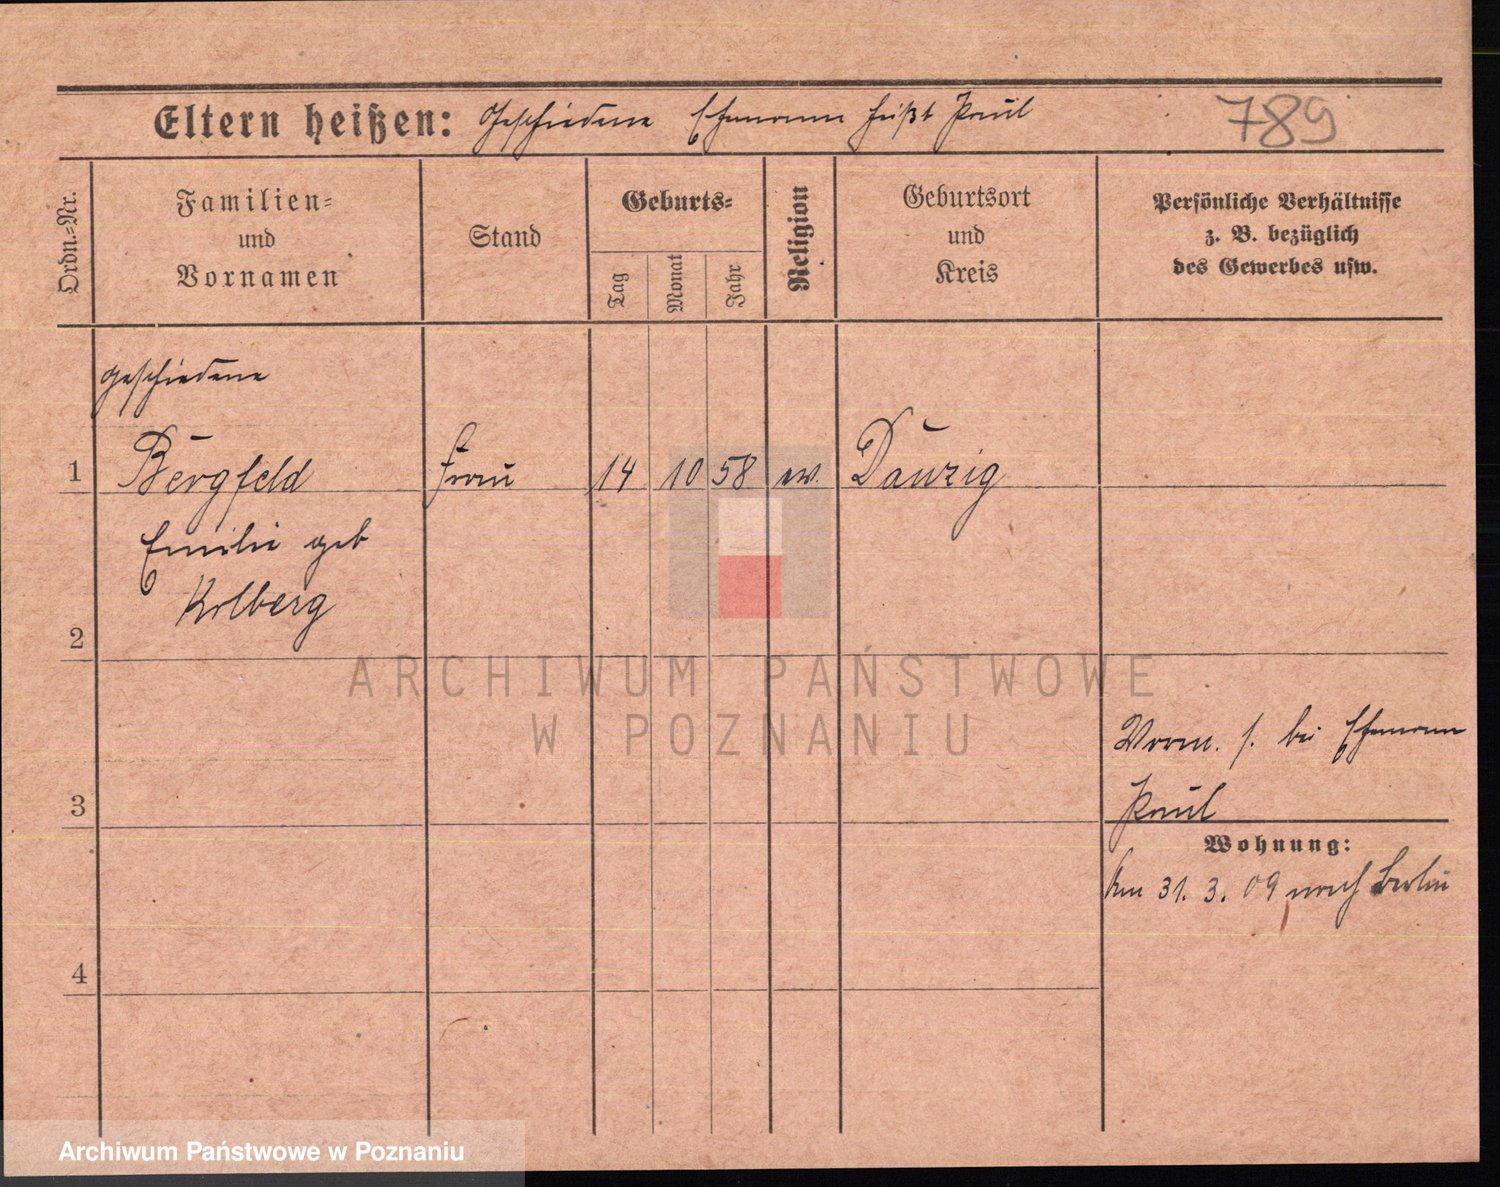 Eltern heißen: Geschiedene Ehemann heißt Paul
789
Ordn.=Nr.
Familien=
und
Vornamen
Stand
Geburts=
Tag
Monat
Jahr
Religion
Geburtsort
und
Kreis
Persönliche Verhältnisse
z. B. bezüglich
des Gewerbes usw.
geschiedene
1 Bergfeld Frau 14 10 58 ev. Danzig
Emilie geb
Kolberg
2
ARCHIWUM PAŃSTWOWE
W POZNANIU
Vorm. s. bei Ehemann
Paul
3
Wohnung:
Am 31. 3. 09 nach Berlin
4
Archiwum Państwowe w Poznaniu